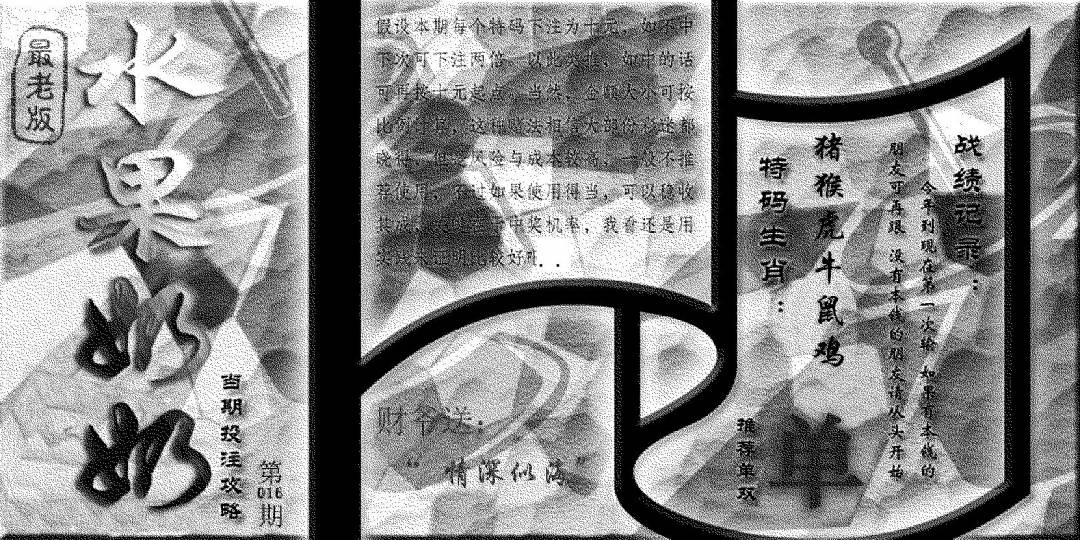 最老版
水果奶奶
当期投注攻略
第
016
期
假设本期每个特码下注为十元，如不中
下次可下注两倍，以此类推，如中的话
可再按十元起点，当然，金额大小可按
比例
这种赌法相信大部份彩迷都
晓得，但是风险与成本较高，一般不推
荐使用，不过如果使用得当，可以稳收
其成，
中奖机率，我看还是用
实战来证明比较好啊．．
财爷送：
“情深似海”
战绩记录：
今年到现在第一次输 如果有本钱的
朋友可再跟 没有本钱的朋友请从头开始
猪猴虎牛鼠鸡
特码生肖：
单
推荐单双